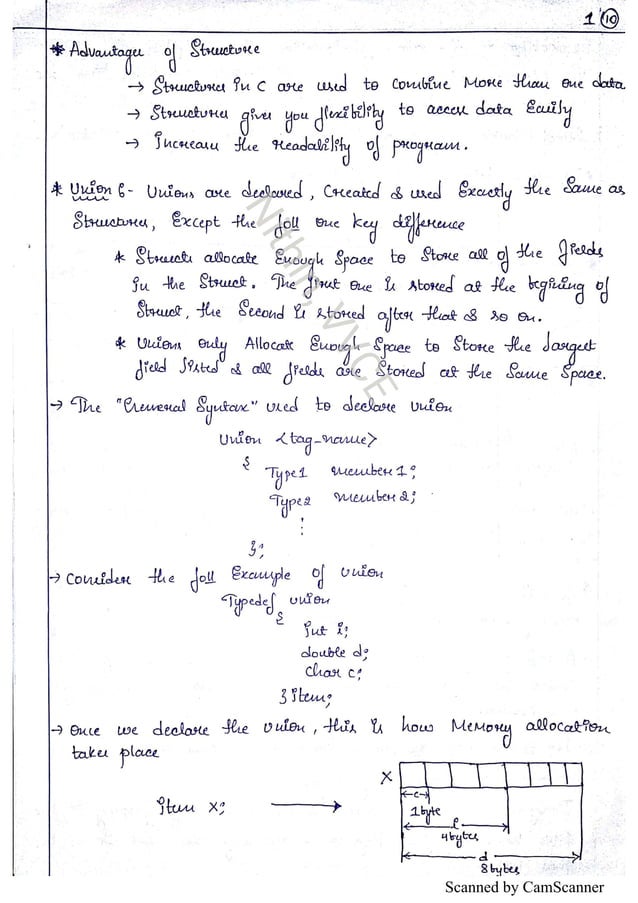 1 10
* Advantages of Structure
→ Structures in C are used to combine More than one data
→ Structures gives you flexibility to access data Easily
→ Increases the readability of program.
* Union :- Unions are declared, Created & used Exactly the Same as
Structures, Except the foll one key difference
* Structs allocate Enough Space to Store all of the fields
in the Struct. The first one is stored at the begining of
Struct, the Second is stored after that & so on.
* Unions only Allocate Enough Space to Store the largest
field listed & all fields are Stored at the Same Space.
→ The "General Syntax" used to declare union
Union <tag-name>
{
Type1 member1;
Type2 member2;
⋮
};
→ Consider the foll Example of union
Typedef union
{
int i;
double d;
char c;
}item;
→ Once we declare the union, this is how Memory allocation
takes place
X
item x; →
c
1 byte
i
4 bytes
d
8 bytes
Nithin, VVCE
Scanned by CamScanner